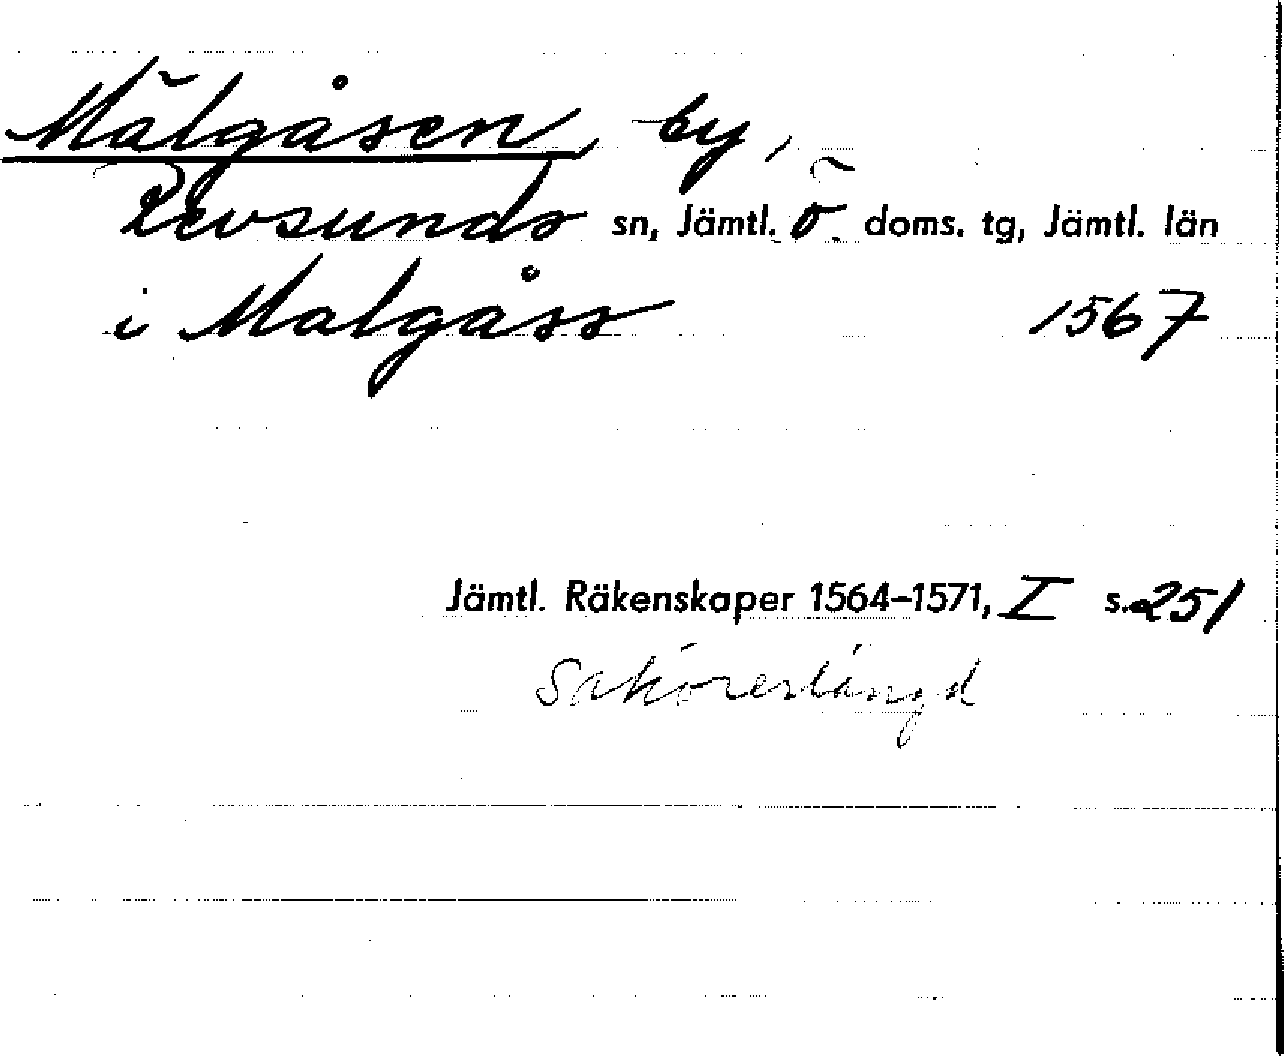 Mälgåsen, by,
Revsunds sn, Jämtl. ö. doms. tg, Jämtl. län
i Malgåss 1567
Jämtl. Räkenskaper 1564–1571, I s. 251
Saköreslängd